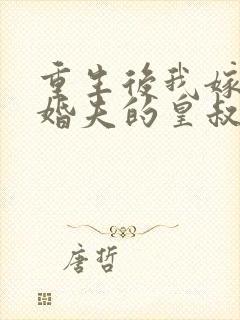 重生後我嫁
婚夫的皇叔
唐哲